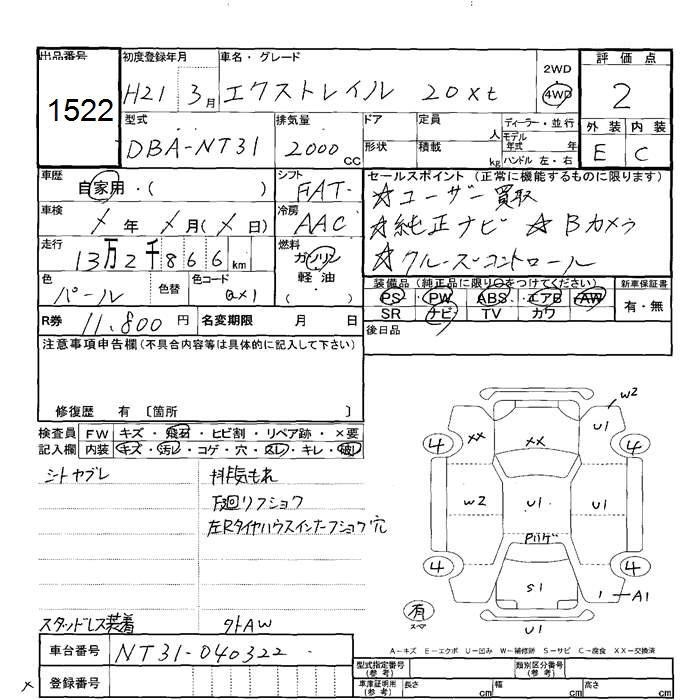 出品番号 初度登録年月 車名・グレード 評価点
1522 H21 3月 エクストレイル 20xt 2WD 4WD 2
型式 排気量 ドア 定員 人 ディーラー・並行 外装 内装
DBA-NT31 2000cc 形状 積載 kg モデル年式 年 ハンドル 左・右 E C
車歴 自家用・( ) シフト FAT セールスポイント (正常に機能するものに限ります)
☆ユーザー買取
車検 ／年 ／月(／日) 冷房 AAC ☆純正ナビ ☆Bカメラ
走行 13万2千866km 燃料 ガソリン 軽油 ( ) ☆クルーズコントロール
色 パール 色替 色コード QX1 装備品 (純正品に限り○をつけてください) 新車保証書
PS PW ABS エアB AW 有・無
R券 11.800円 名変期限 月 日 SR ナビ TV カワ
注意事項申告欄(不具合内容等は具体的に記入して下さい) 後日品
修復歴 有 〔箇所 〕
検査員 FW キズ・飛石・ヒビ割・リペア跡・×要
記入欄 内装 キズ・汚レ・コゲ・穴・スレ・キレ・破レ
シトヤブレ 排気もれ
下廻リフショク
左Rタイヤハウスインナーフショク穴
スタッドレス装着 外AW
w2
U1
4 xx xx 4
w2 U1 U1
Pルーゲ
4 S1 4
1 A1
有 スペア
U1
A－キズ E－エクボ U－凹み W－補修跡 S－サビ C－腐食 XX－交換済
車台番号 NT31-040322
登録番号
型式指定番号(参考) 類別区分番号(参考)
車庫証明用(参考) 長さ cm 幅 cm 高さ cm